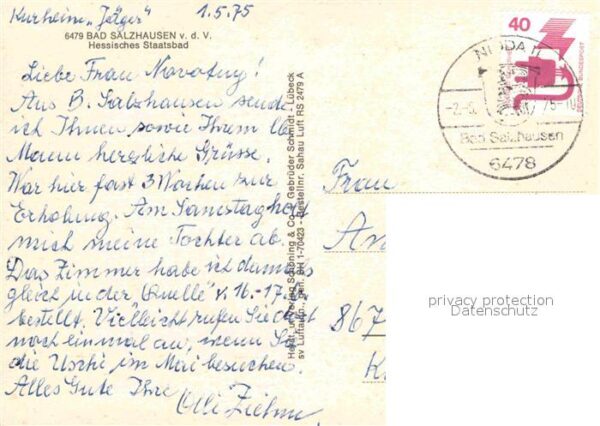 Kurheim „Jäger" 1.5.75
6479 BAD SALZHAUSEN v. d. V.
Hessisches Staatsbad
Liebe Frau Novotny!
Aus B. Salzhausen sende
ich Ihnen, sowie Ihrem lb.
Mann herzliche Grüsse.
War hier fast 3 Wochen zur
Erholung. Am Samstag holt
mich meine Tochter ab.
Das Zimmer habe ich damals
gleich in der „Quelle" v. 16.-17.
bestellt. Vielleicht rufen Sie dort
noch einmal an, wenn Sie
die Uschi im Mai besuchen.
Alles Gute Ihre
Olli Ziehm
Herst. u. Verlag Schöning & Co. + Gebrüder Schmidt - Lübeck
sv Luftaufn., gen. SH 1-70423 - Bestellnr. Sahau Luft RS 2479 A
40
DEUTSCHE BUNDESPOST
NIDDA
75-10
Bad Salzhausen
6478
Frau
867
privacy protection
Datenschutz